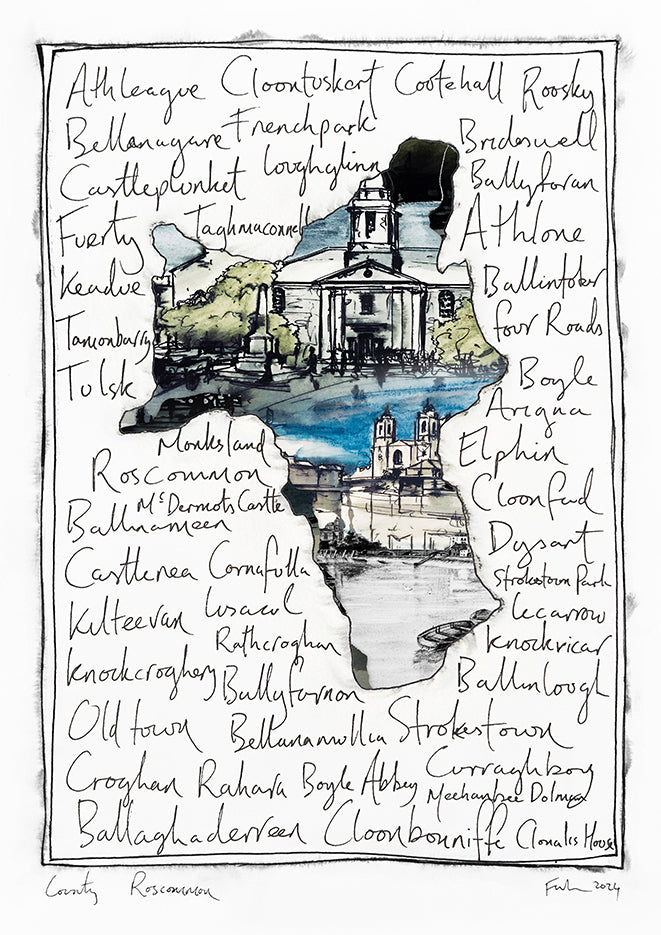 Athleague Cloontuskert Cootehall Roosky
Bellanagare Frenchpark Brideswell
Castleplunket Loughglinn Ballyforan
Fuerty Taghmaconnell Athlone
Keadue Ballintober
Tarmonbarry Four Roads
Tulsk Boyle
Arigna
Monksland Elphin
Roscommon
McDermots Castle Cloonfad
Ballinameen Dysart
Castlerea Cornafulla Strokestown Park
Kilteevan Lusacul Lecarrow
Rathcroghan Knockvicar
Knockcroghery Ballyfarnon Ballinlough
Old town Bellanamullia Strokestown
Croghan Rahara Boyle Abbey Curraghboy
Meehambee Dolmen
Ballaghaderreen Cloonbonniffe Clonalis House
County Roscommon 2024